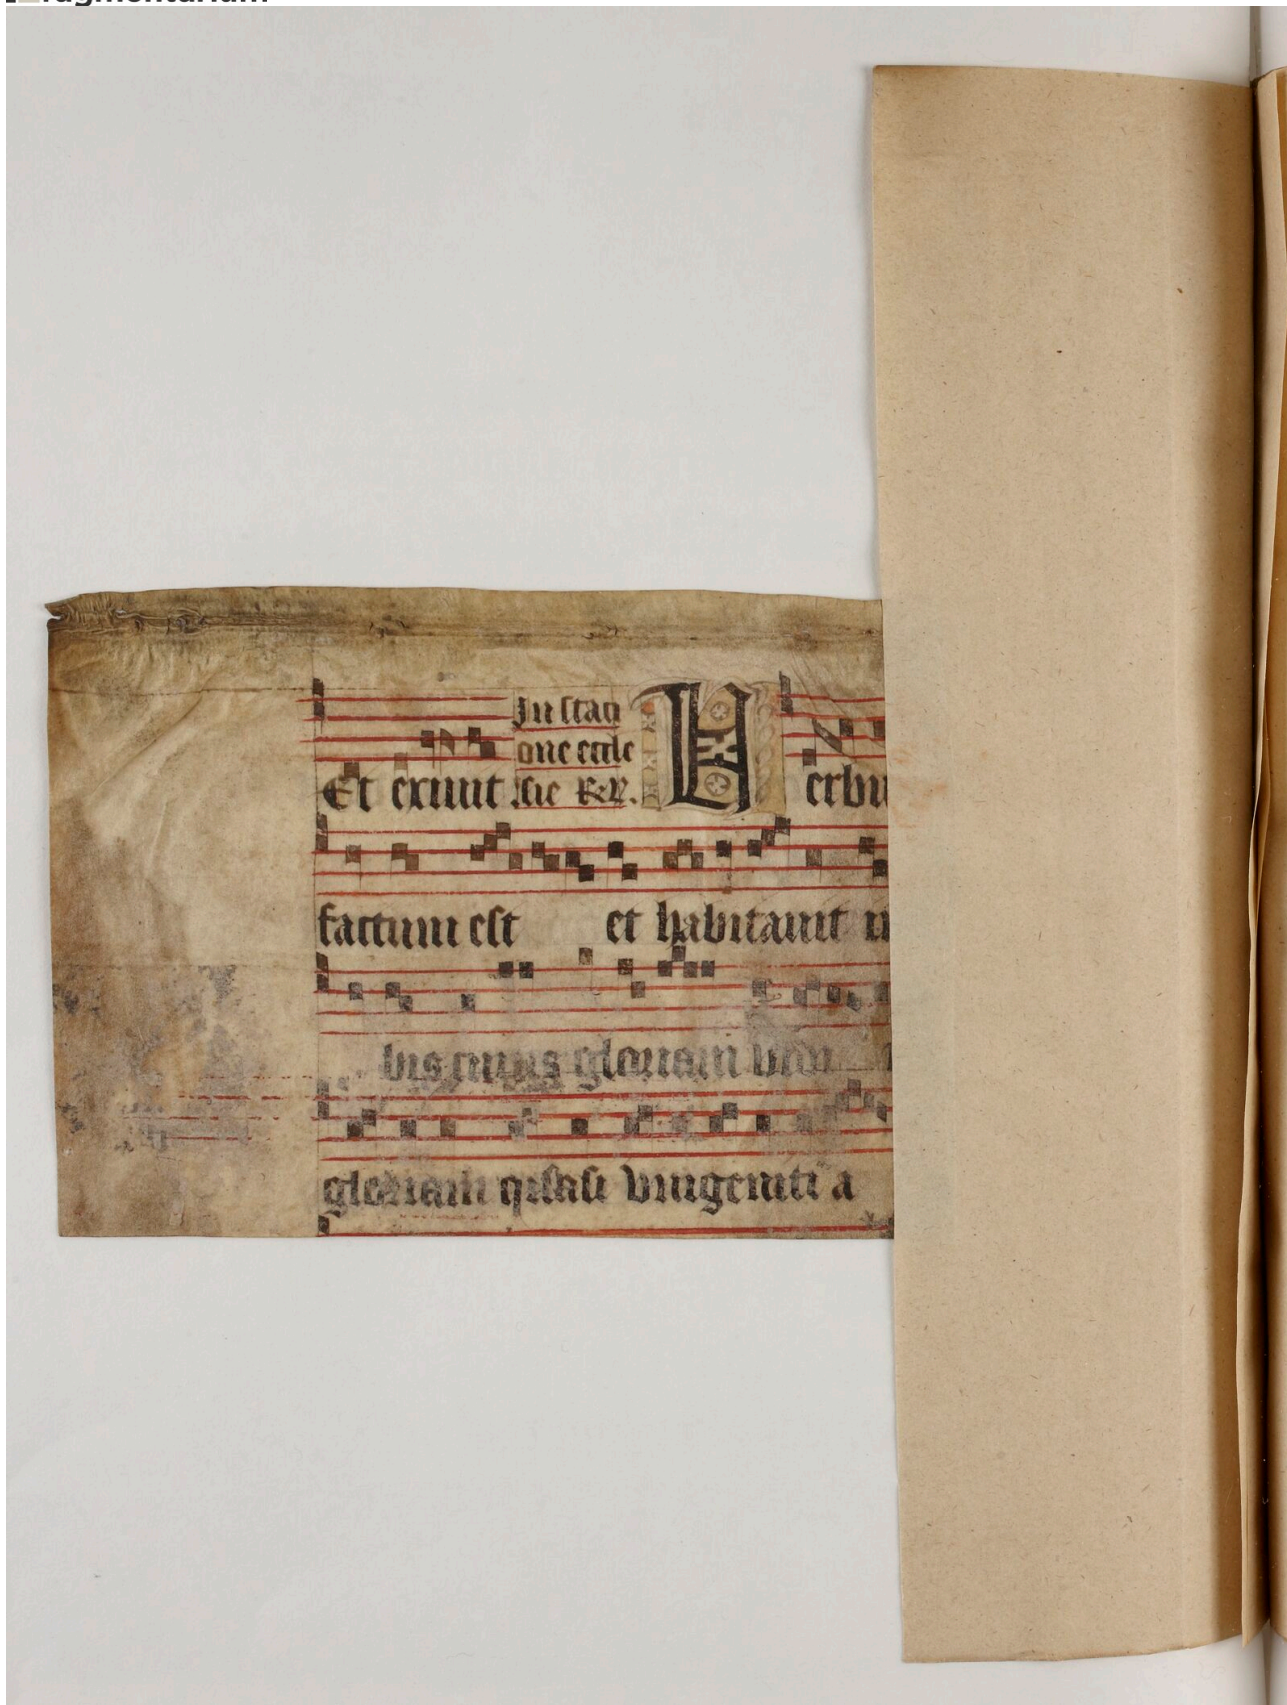 fragmentarium
Et exiuit In stati
one eccle
sie R. V erbu
factum est et habitauit i
bis cuius gloriam vidi
gloriam quasi vnigeniti a